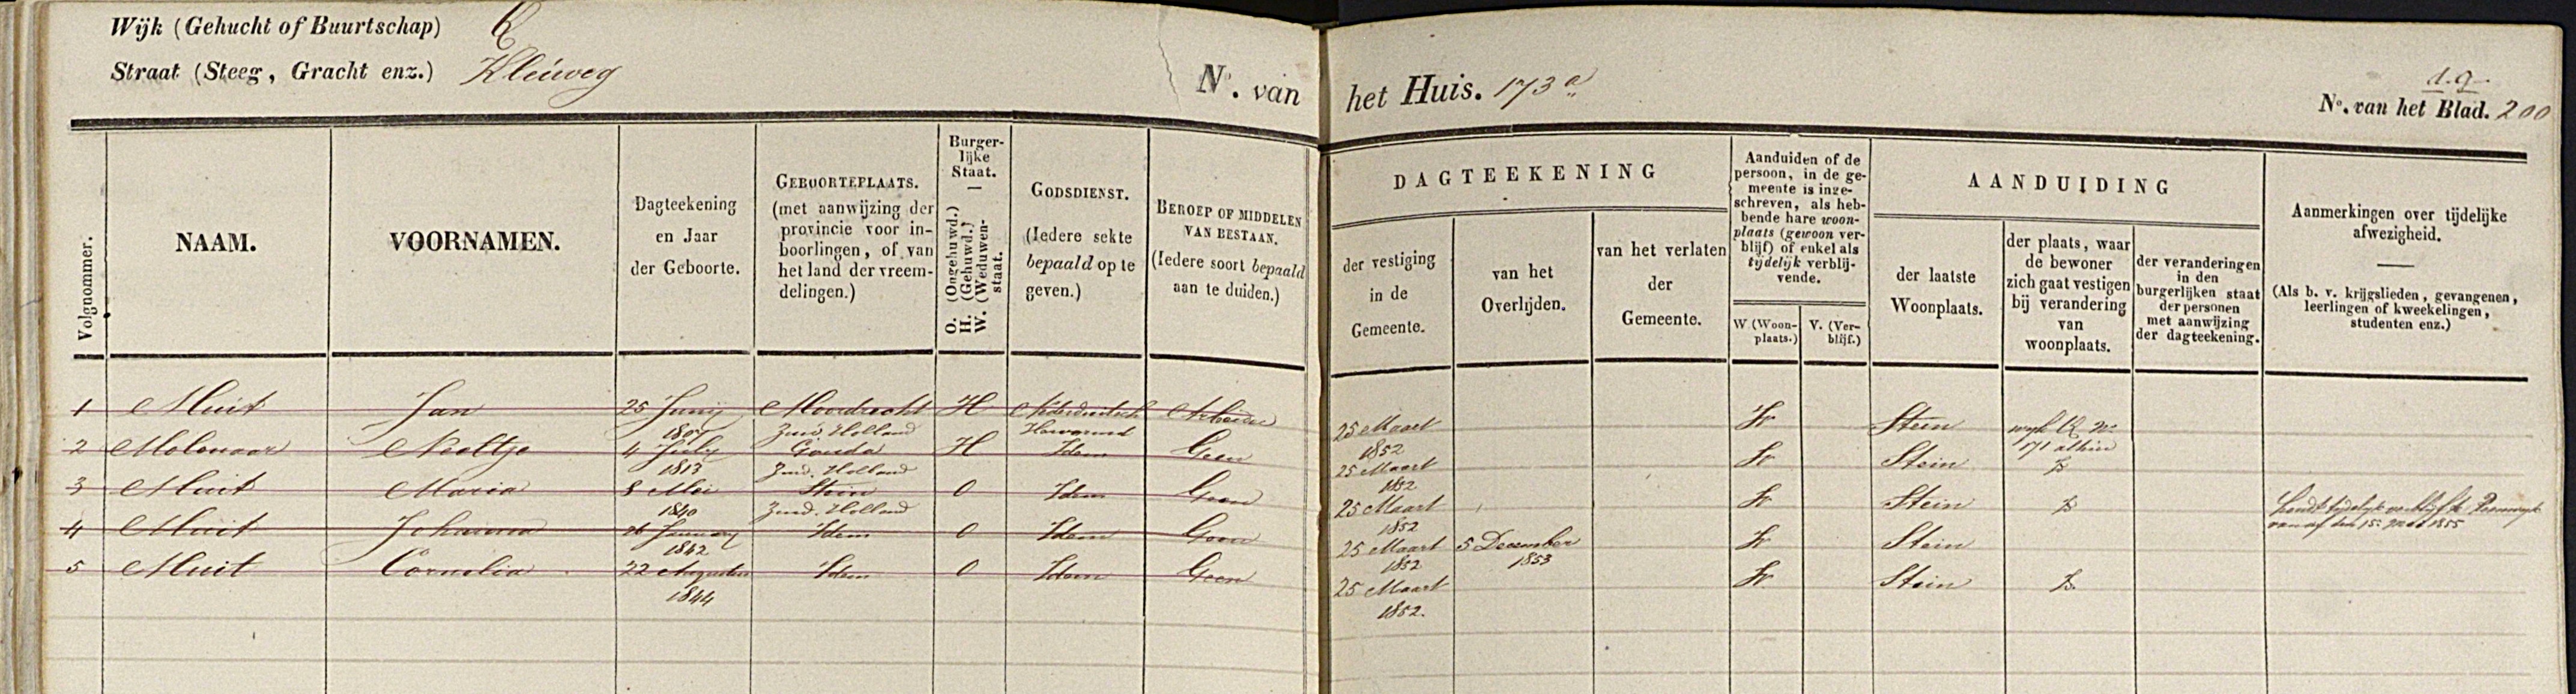 Wijk (Gehucht of Buurtschap)
Straat (Steeg, Gracht enz.) Kleiweg
N°. van het Huis. 173 a
19
N°. van het Blad. 200
Volgnommer.
NAAM.
VOORNAMEN.
Dagteekening
en Jaar
der Geboorte.
GEBOORTEPLAATS.
(met aanwijzing der
provincie voor in-
boorlingen, of van
het land der vreem-
delingen.)
Burger-
lijke
Staat.
O. (Ongehuwd.)
H. (Gehuwd.)
W. (Weduwen-
staat.
GODSDIENST.
(Iedere sekte
bepaald op te
geven.)
BEROEP OF MIDDELEN
VAN BESTAAN.
(Iedere soort bepaald
aan te duiden.)
DAGTEEKENING
der vestiging
in de
Gemeente.
van het
Overlijden.
van het verlaten
der
Gemeente.
Aanduiden of de
persoon, in de ge-
meente is inge-
schreven, als heb-
bende hare woon-
plaats (gewoon ver-
blijf) of enkel als
tijdelijk verblij-
vende.
W (Woon-
plaats.)
V. (Ver-
blijf.)
AANDUIDING
der laatste
Woonplaats.
der plaats, waar
de bewoner
zich gaat vestigen
bij verandering
van
woonplaats.
der veranderingen
in den
burgerlijken staat
der personen
met aanwijzing
der dagteekening.
Aanmerkingen over tijdelijke
afwezigheid.
(Als b. v. krijgslieden, gevangenen,
leerlingen of kweekelingen,
studenten enz.)
1 Muit Jan 25 Junij Moordrecht H Nederduitsch Arbeider 25 Maart Stein wyk
1807 Zuid Holland Hervormd 1852 171 alhier
2 Molenaar Neeltje 4 July Gouda H Idem Geen 25 Maart Stein
1813 Zuid. Holland 1852
3 Muit Maria 8 Mei Stein O Idem Geen 25 Maart Stein tydelyk verblijf te Reeuwyk
1840 Zuid. Holland 1852 vanaf den 15 1855
4 Muit Johanna 26 January Idem O Idem Geen 25 Maart 5 December Stein
1842 1852 1853
5 Muit Cornelia 22 Augustus Idem O Idem Geen 25 Maart Stein
1844 1852.